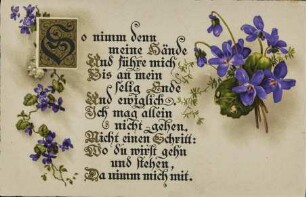 So nimm denn
meine Hände
Und führe mich
Bis an mein
selig Ende
Und ewiglich
Ich mag allein
nicht gehen,
Nicht einen Schritt:
Wo du wirst gehn
und stehen,
Da nimm mich mit.